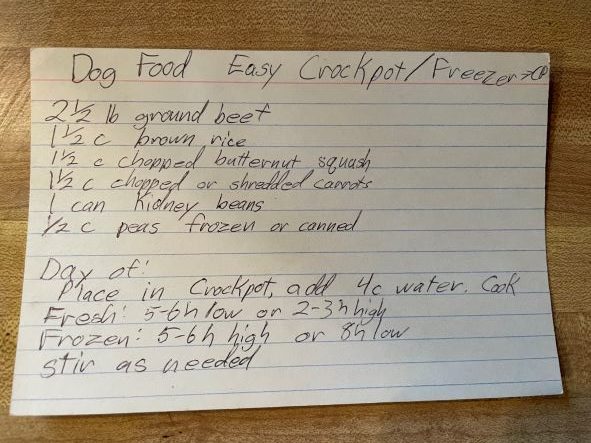 Dog Food Easy Crockpot/Freezer → CP
2 1/2 lb ground beef
1 1/2 c brown rice
1 1/2 c chopped butternut squash
1 1/2 c chopped or shredded carrots
1 can Kidney beans
1/2 c peas frozen or canned
Day of:
Place in Crockpot, add 4c water. Cook
Fresh: 5-6h low or 2-3h high
Frozen: 5-6h high or 8h low
stir as needed